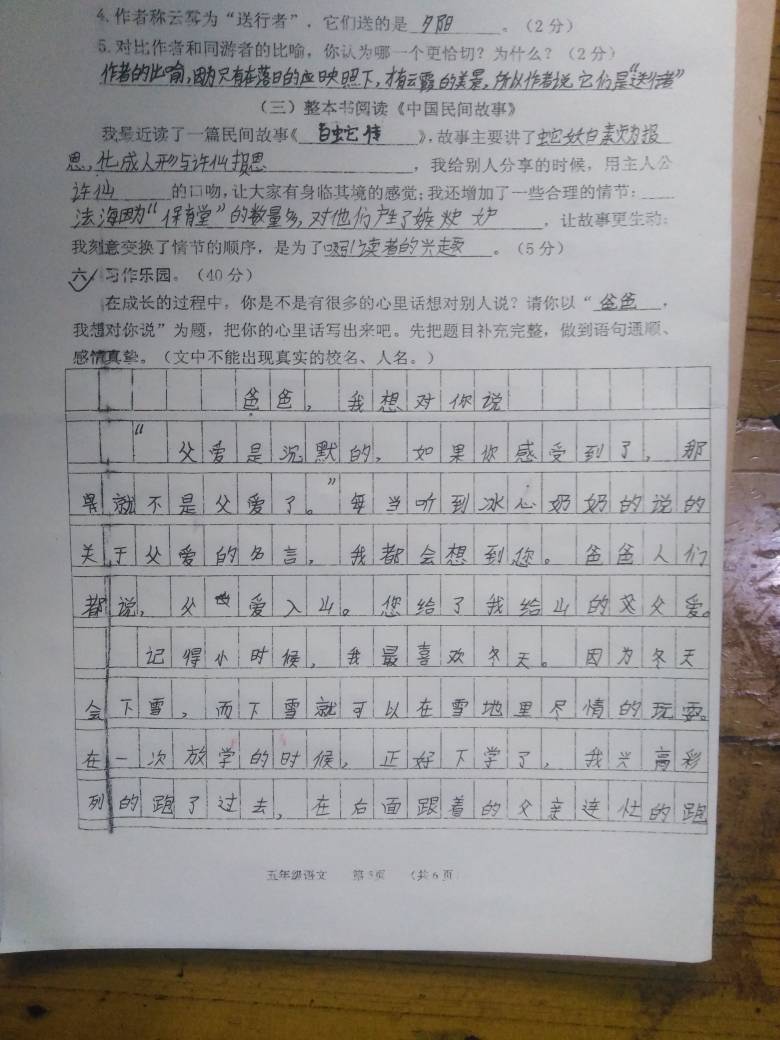 4.作者称云雾为“送行者”，它们送的是 夕阳 。（2分）
5.对比作者和同游者的比喻，你认为哪一个更恰切？为什么？（2分）
作者的比喻，因为只有在落日的应映照下，才有云霞的美景，所以作者说它们是“送行者”
（三）整本书阅读《中国民间故事》
我最近读了一篇民间故事《 白蛇传 》，故事主要讲了蛇妖白素贞为报
恩，化成人形与许仙报恩 ，我给别人分享的时候，用主人公
许仙 的口吻，让大家有身临其境的感觉；我还增加了一些合理的情节：
法海因为“保育堂”的数量多，对他们产生了嫉妒 ，让故事更生动；
我刻意变换了情节的顺序，是为了吸引读者的兴趣 。（5分）
六、习作乐园。（40分）
在成长的过程中，你是不是有很多的心里话想对别人说？请你以“ 爸爸 ，
我想对你说”为题，把你的心里话写出来吧。先把题目补充完整，做到语句通顺、
感情真挚。（文中不能出现真实的校名、人名。）
爸爸，我想对你说
“父爱是沉默的，如果你感受到了，那
就不是父爱了。”每当听到冰心奶奶的说的
关于父爱的名言，我都会想到您。爸爸人们
都说，父爱入山。您给了我给山的父爱。
记得小时候，我最喜欢冬天。因为冬天
会下雪，而下雪就可以在雪地里尽情的玩耍。
在一次放学的时候，正好下学了，我兴高彩
列的跑了过去，在后面跟着的父亲连忙的跑
五年级语文 第5页 （共6页）